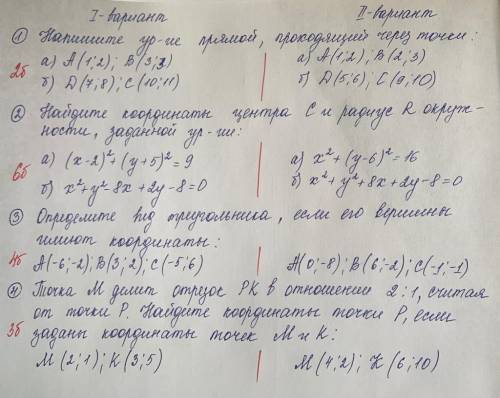 I-вариант II-вариант
① Напишите ур-ие прямой, проходящий через точки:
2б а) А(1;2); В(3;2) а) А(1;2); В(2;3)
б) D(7;8); С(10;11) б) D(5;6); С(9;10)
② Найдите координаты центра С и радиус R окруж-
ности, заданной ур-ии:
6б а) (x-2)²+(y+5)²=9 а) x²+(y-6)²=16
б) x²+y²-8x+2y-8=0 б) x²+y²+8x+2y-8=0
③ Определите вид треугольника, если его вершины
имеют координаты:
4б А(-6;-2); В(3;2); С(-5;6) А(0;-8); В(6;-2); С(-1;-1)
④ Точка М делит отрезок РК в отношение 2:1, считая
от точки Р. Найдите координаты точки Р, если
3б заданы координаты точек М и К:
М(2;1); К(3;5) М(4;2); К(6;10)